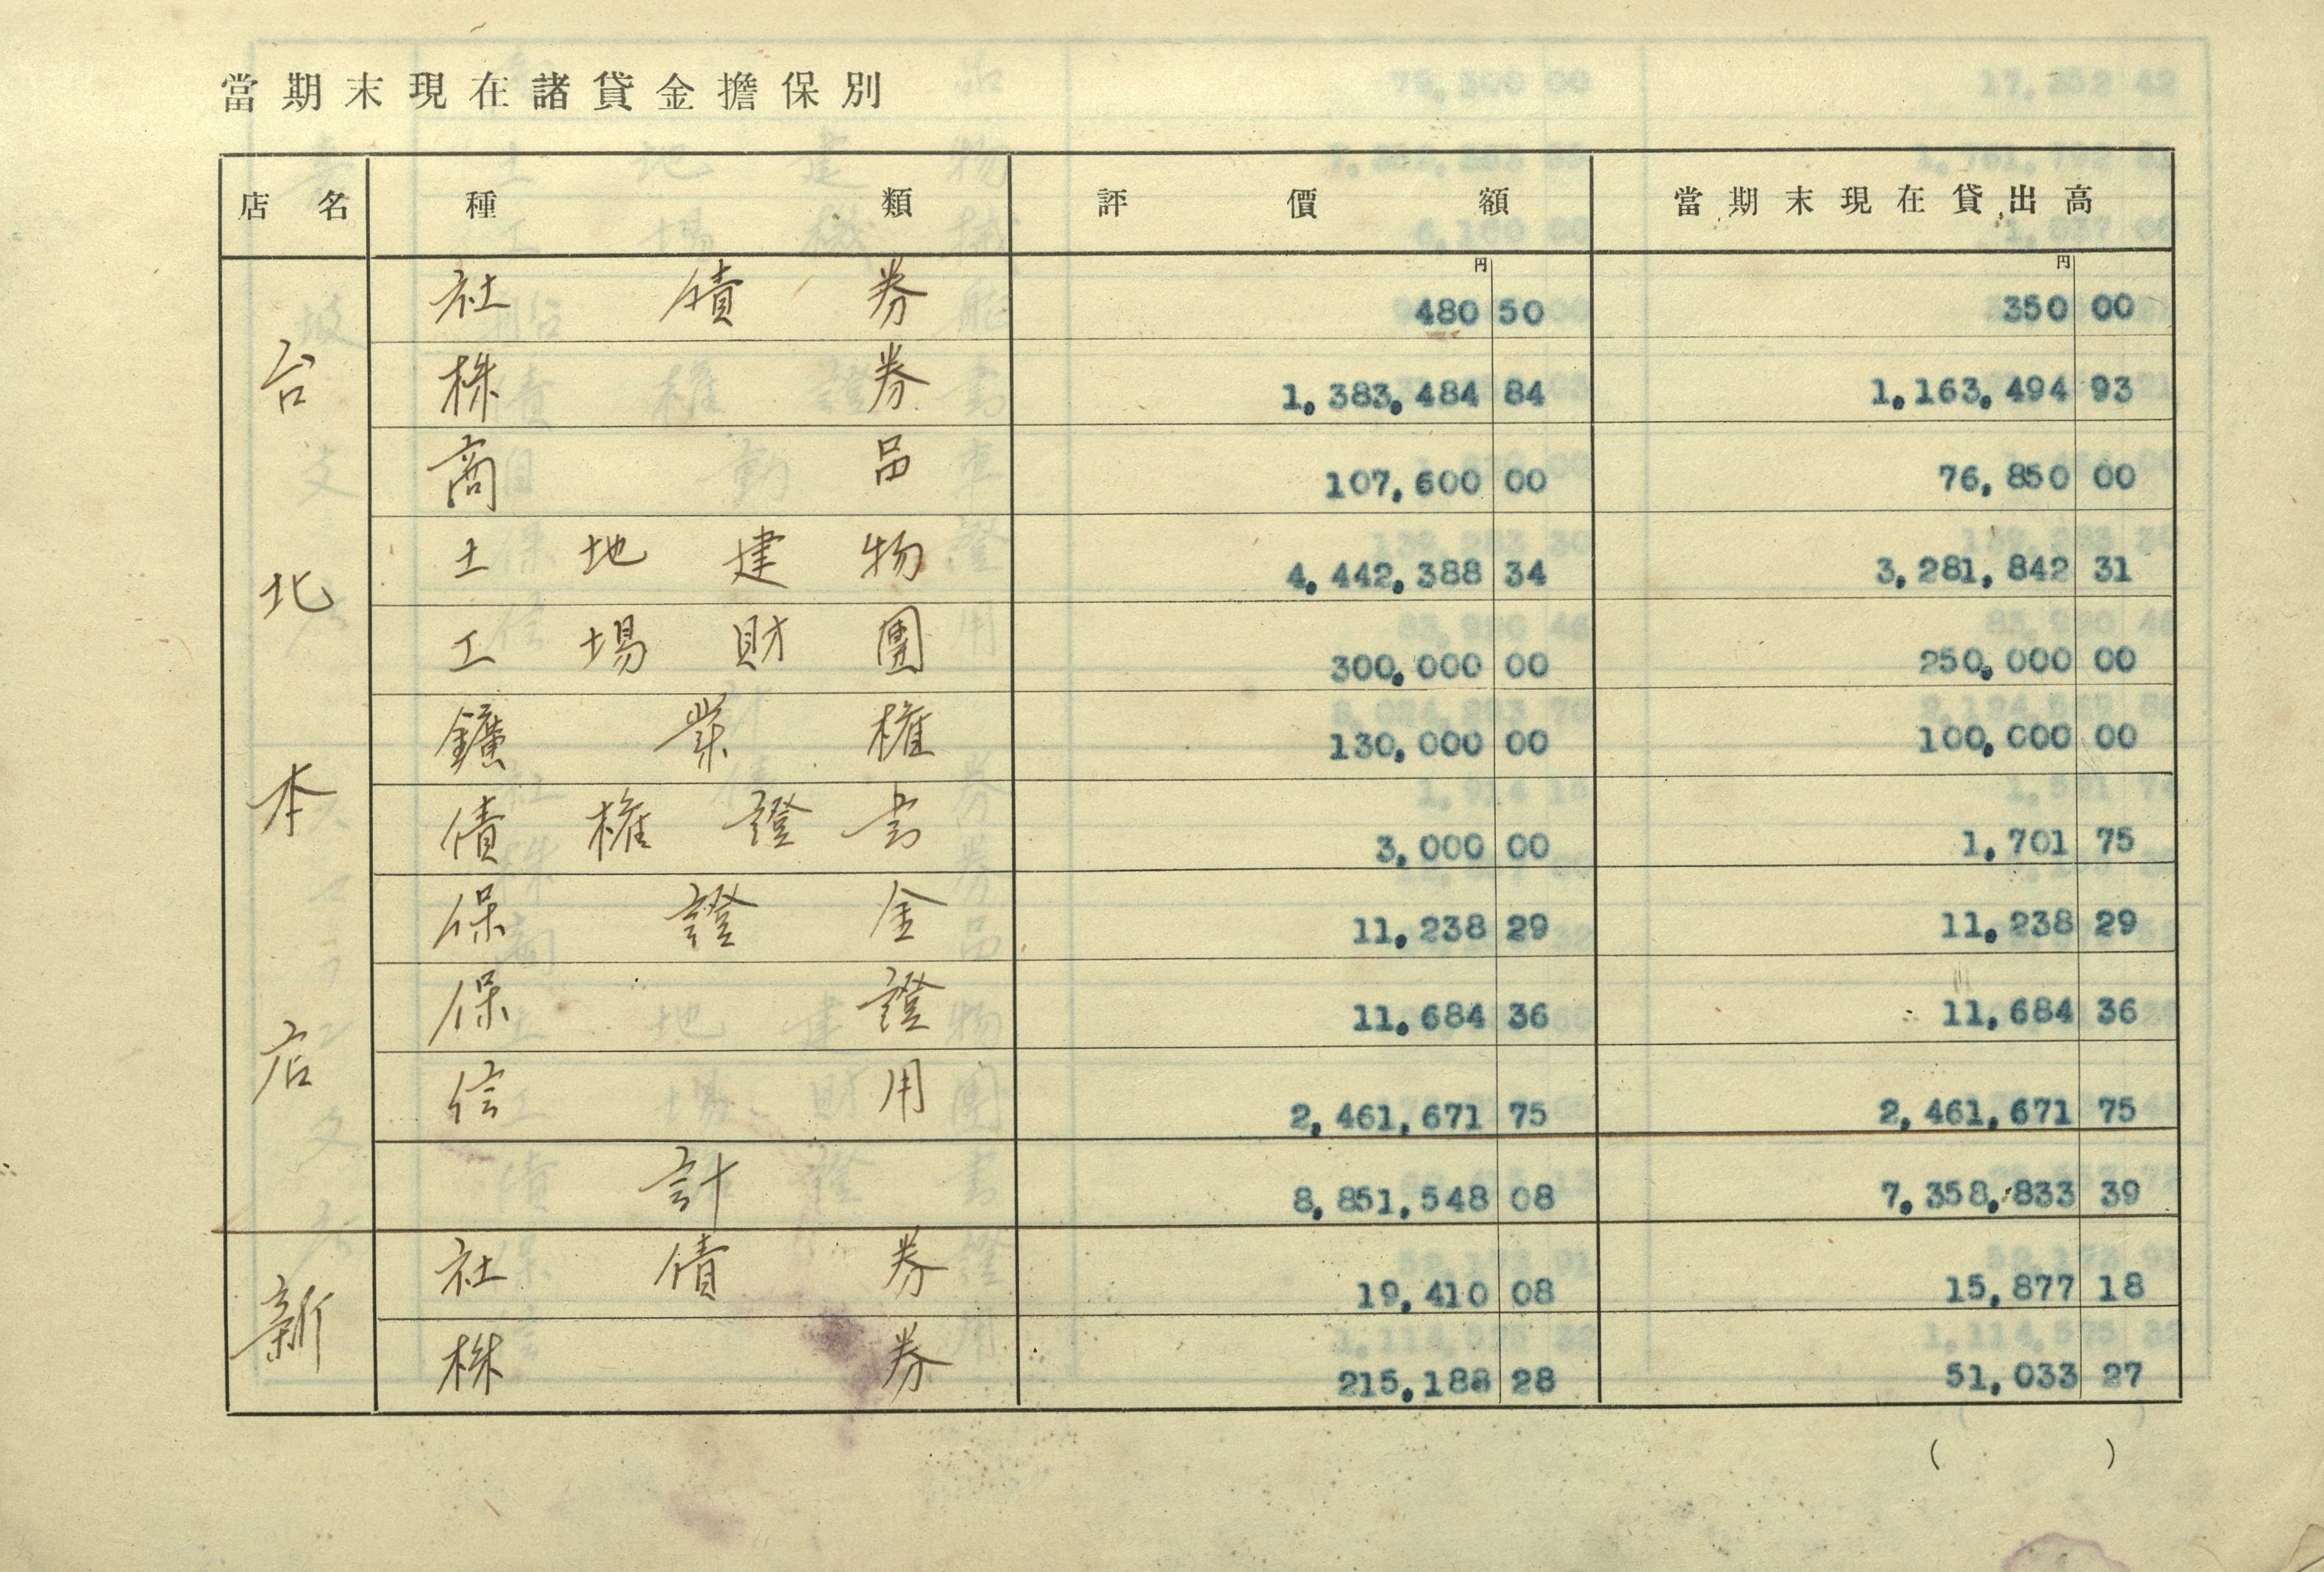 當期末現在諸貸金擔保別
店名 種類 評價額 當期末現在貸出高
円 円
台北本店
社債券 480 50 350 00
株券 1,383,484 84 1,163,494 93
商品 107,600 00 76,850 00
土地建物 4,442,388 34 3,281,842 31
工場財團 300,000 00 250,000 00
鑛業權 130,000 00 100,000 00
債權證書 3,000 00 1,701 75
保證金 11,238 29 11,238 29
保證 11,684 36 11,684 36
信用 2,461,671 75 2,461,671 75
計 8,851,548 08 7,358,833 39
新
社債券 19,410 08 15,877 18
株券 215,188 28 51,033 27
( )